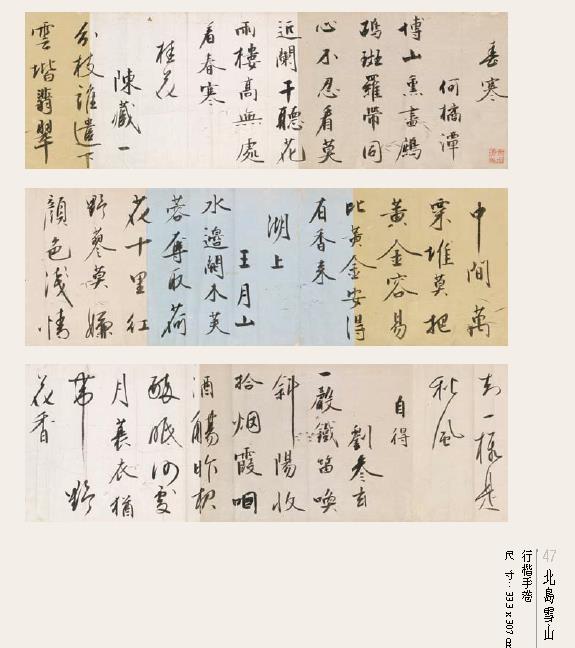 春寒
何橘潭
博山熏盡鷓
鴣斑羅帶同
心不忍看莫
近闌干聽花
雨樓高無處
着春寒
桂花
陳藏一
分枝誰遣下
雲堦翡翠
中間萬
粟堆莫把
黃金容易
比黃金安得
有香來
湖上
王月山
水邊開木芙
蓉奪取荷
花十里紅
野蓼莫嫌
顏色淺情
知一樣是
秋風
自得
劉參玄
一聲鐵笛喚
斜陽收
拾烟霞
酒觴昨夜
醉眠何處
月蓑衣猶
帶野
花香
47 北島雪山
行楷手卷
尺 寸：333 x 307